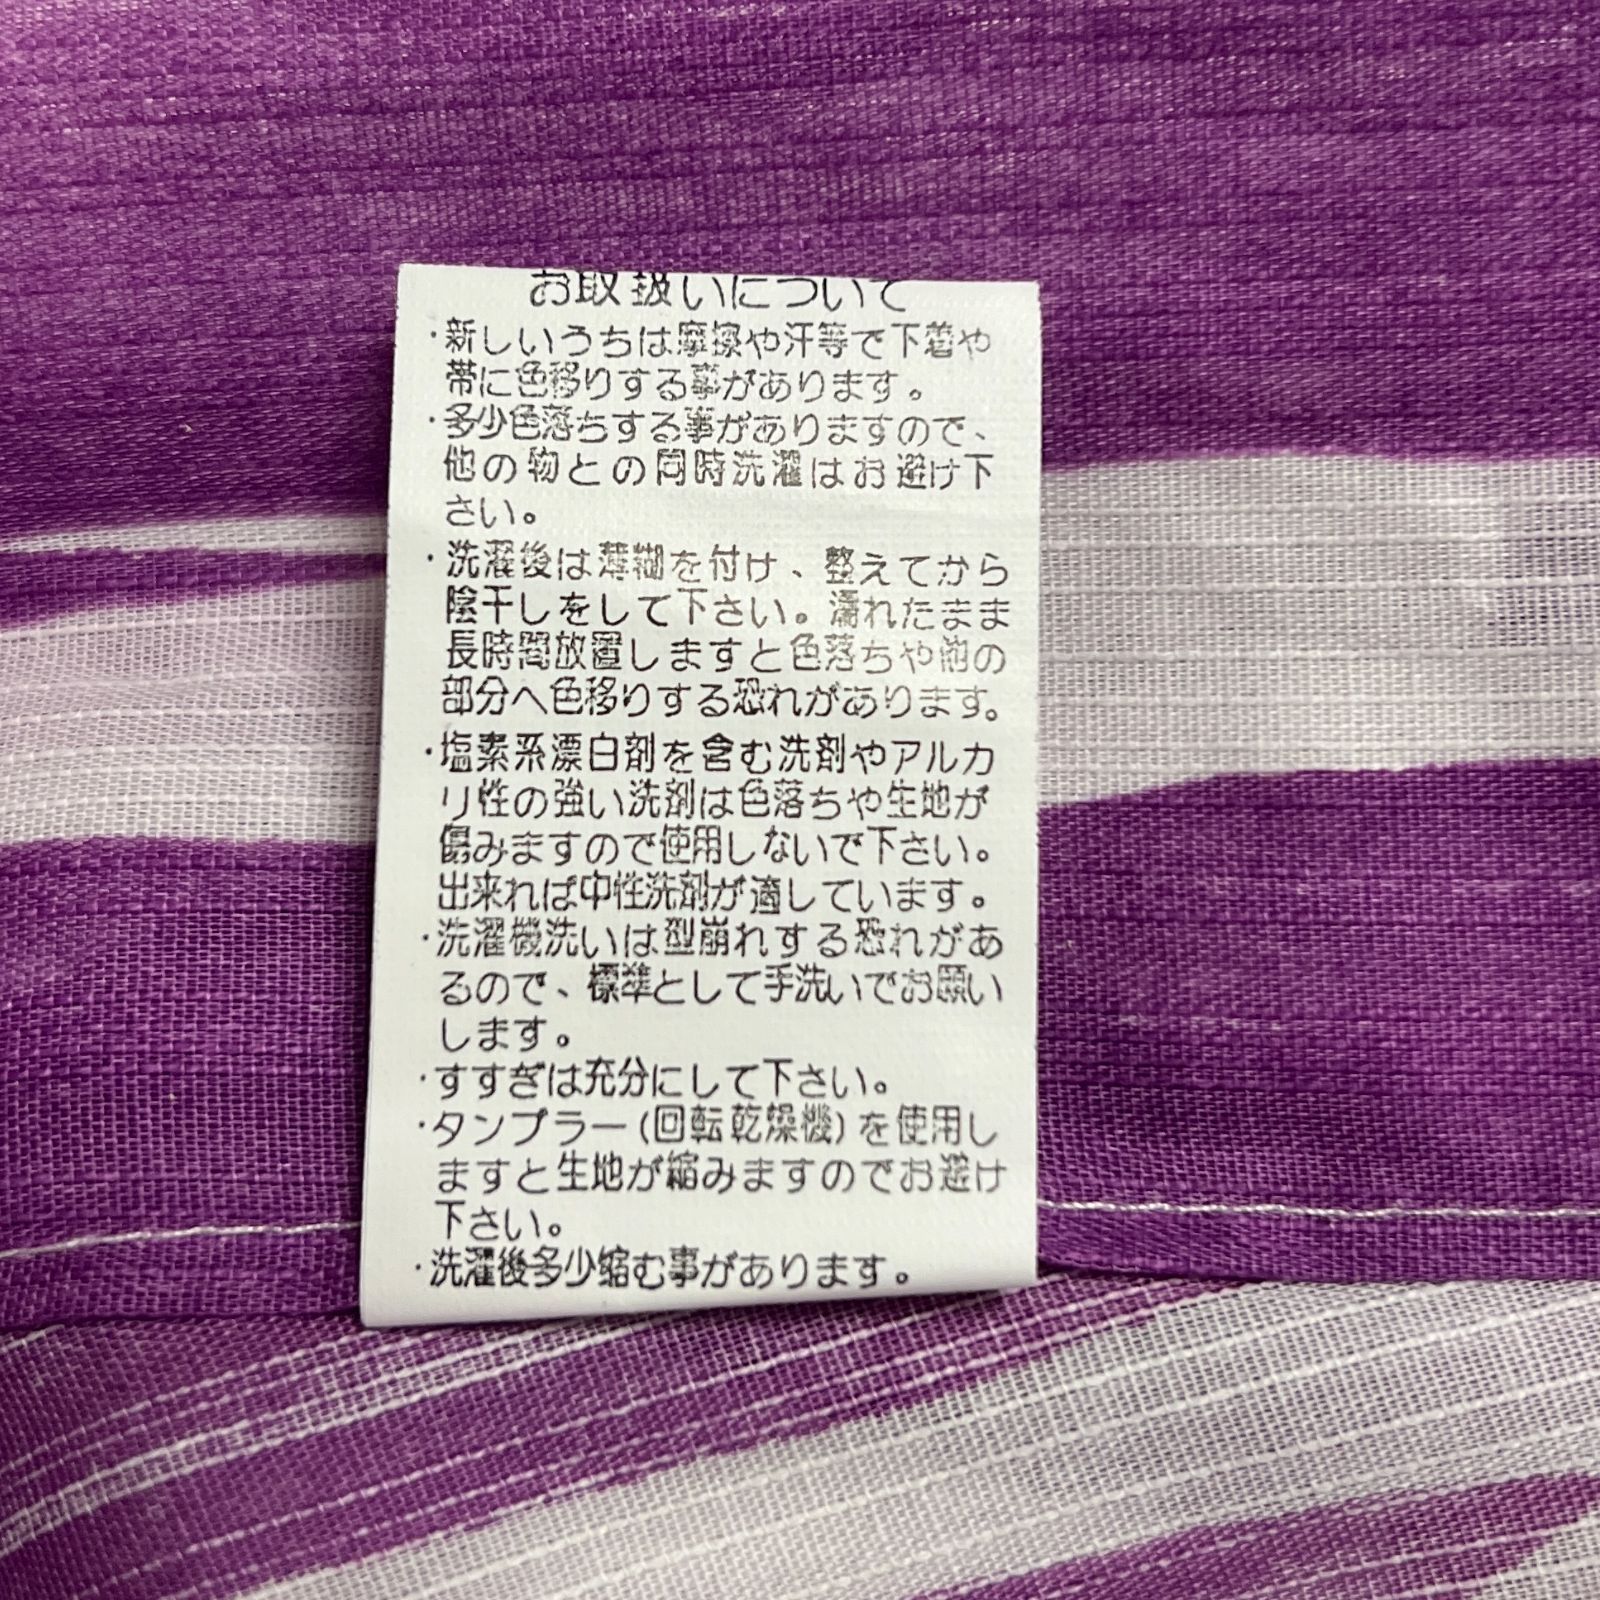 お取扱いについて
・新しいうちは摩擦や汗等で下着や
帯に色移りする事があります。
・多少色落ちする事がありますので、
他の物との同時洗濯はお避け下
さい。
・洗濯後は薄糊を付け、整えてから
陰干しをして下さい。濡れたまま
長時間放置しますと色落ちや他の
部分へ色移りする恐れがあります。
・塩素系漂白剤を含む洗剤やアルカ
リ性の強い洗剤は色落ちや生地が
傷みますので使用しないで下さい。
出来れば中性洗剤が適しています。
・洗濯機洗いは型崩れする恐れがあ
るので、標準として手洗いでお願い
します。
・すすぎは充分にして下さい。
・タンブラー(回転乾燥機)を使用し
ますと生地が縮みますのでお避け
下さい。
・洗濯後多少縮む事があります。